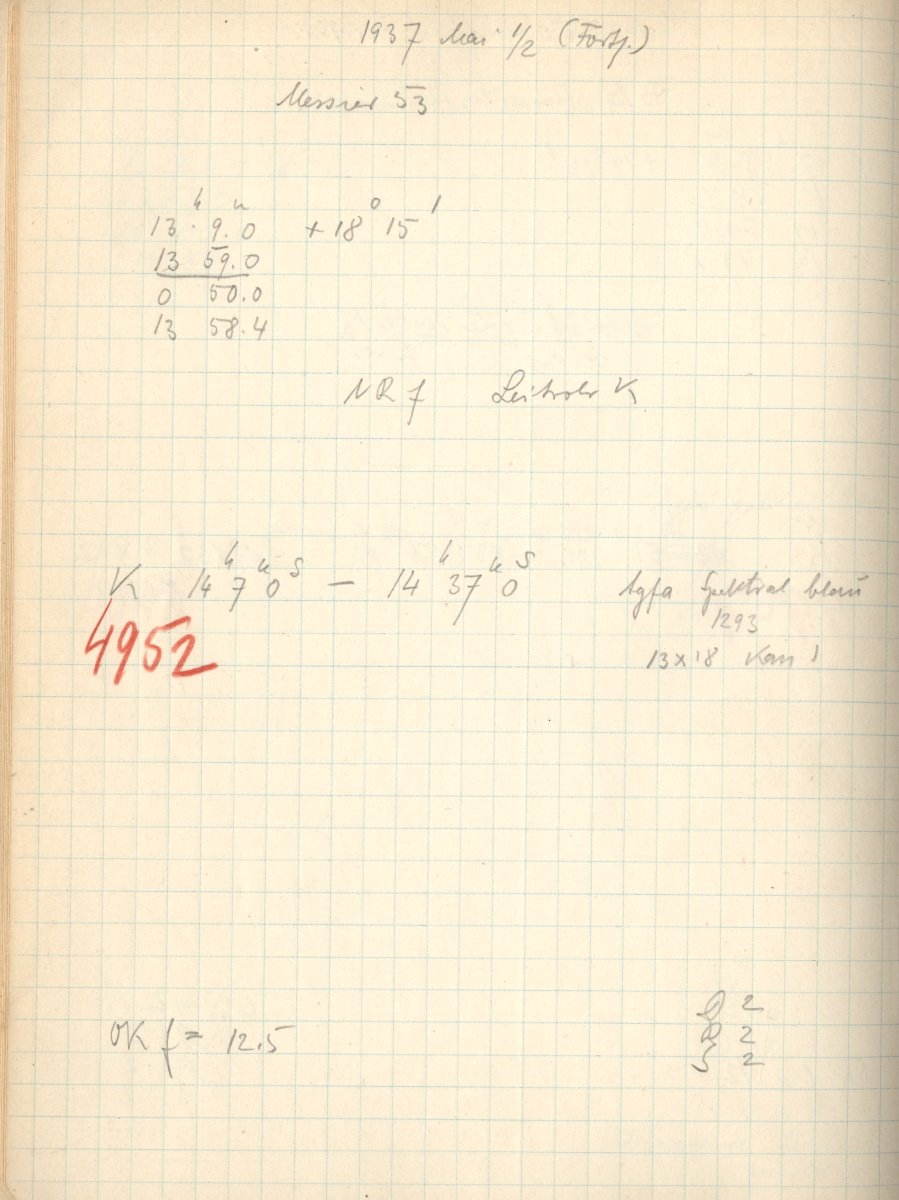 1937 Mai 1/2 (Forts.)
Messier 53
13 h 9.0 m +18° 15'
13 59.0
0 50.0
13 58.4
NR f Leitrohr K
K 14 h 7 m 0 s — 14 h 37 m 0 s Agfa Spektral blau
4952 1293
13x18 Kan 1
OK f = 12.5
2
R 2
S 2